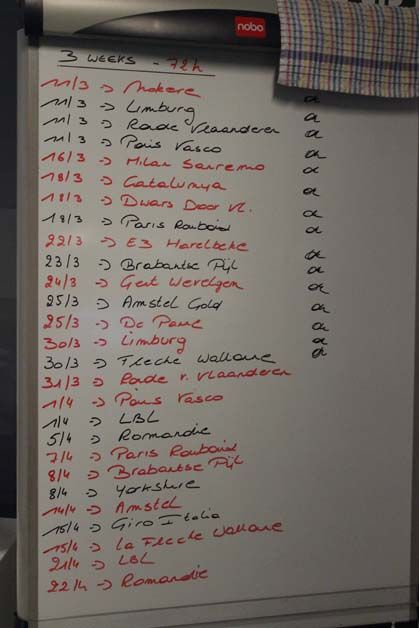 nobo
3 WEEKS - 72h
11/3 -> Nokere
11/3 -> Limburg ok
11/3 -> Ronde Vlaanderen ok
11/3 -> Pais Vasco ok
16/3 -> Milan Sanremo ok
18/3 -> Catalunya ok
18/3 -> Dwars Door Vl. ok
18/3 -> Paris Roubaix ok
22/3 -> E3 Harelbeke
23/3 -> Brabantse Pijl ok
24/3 -> Gent Wevelgem ok
25/3 -> Amstel Gold ok
25/3 -> De Panne ok
30/3 -> Limburg ok
30/3 -> Fleche Wallone ok
31/3 -> Ronde v. Vlaanderen
1/4 -> Pais Vasco
1/4 -> LBL
5/4 -> Romandie
7/4 -> Paris Roubaix
8/4 -> Brabantse Pijl
8/4 -> Yorkshire
14/4 -> Amstel
15/4 -> Giro Italia
15/4 -> La Fleche Wallone
21/4 -> LBL
22/4 -> Romandie